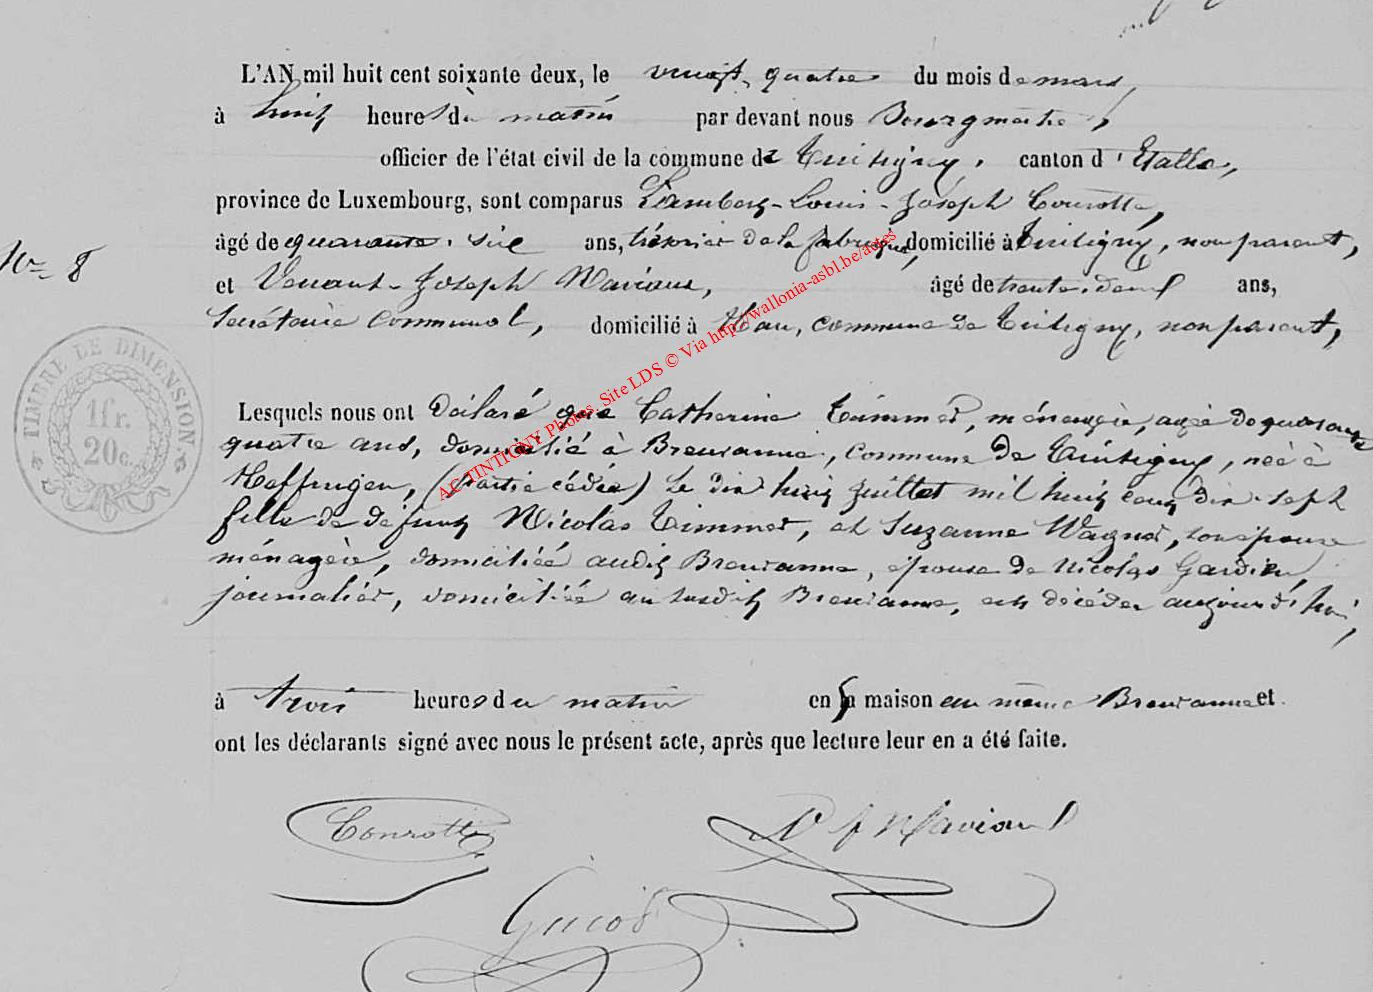 L'AN mil huit cent soixante deux, le vingt quatre du mois de mars,
à huit heures du matin par devant nous Bourgmestre,
officier de l'état civil de la commune de Tintigny, canton d'Etalle,
province de Luxembourg, sont comparus Lambert-Louis-Joseph Conrotte,
âgé de quarante-six ans, trésorier de la fabrique, domicilié à Tintigny, non parent,
N° 8
et Venant-Joseph Naviaux, âgé de trente-deux ans,
Secrétaire Communal, domicilié à Han, commune de Tintigny, non parent,
TIMBRE DE DIMENSION
1fr.
20c.
Lesquels nous ont déclaré que Catherine Timmer, ménagère, agée de quarante
quatre ans, domicilié à Breuvanne, commune de Tintigny, née à
Heffingen, (partie cédée) le dix huit juillet mil huit cent dix-sept
fille de défunt Nicolas Timmer, et Suzanne Wagner, son épouse
ménagère, domiciliée audit Breuvanne, épouse de Nicolas Gardien,
journalier, domiciliée au susdit Breuvanne, est décédée aujourd'hui,
à trois heures du matin en sa maison au même Breuvanne et
ont les déclarants signé avec nous le présent acte, après que lecture leur en a été faite.
Conrotte V J Naviaux
ACTINTIGNY Photos. Site LDS © Via http://wallonia-asbl.be/actes